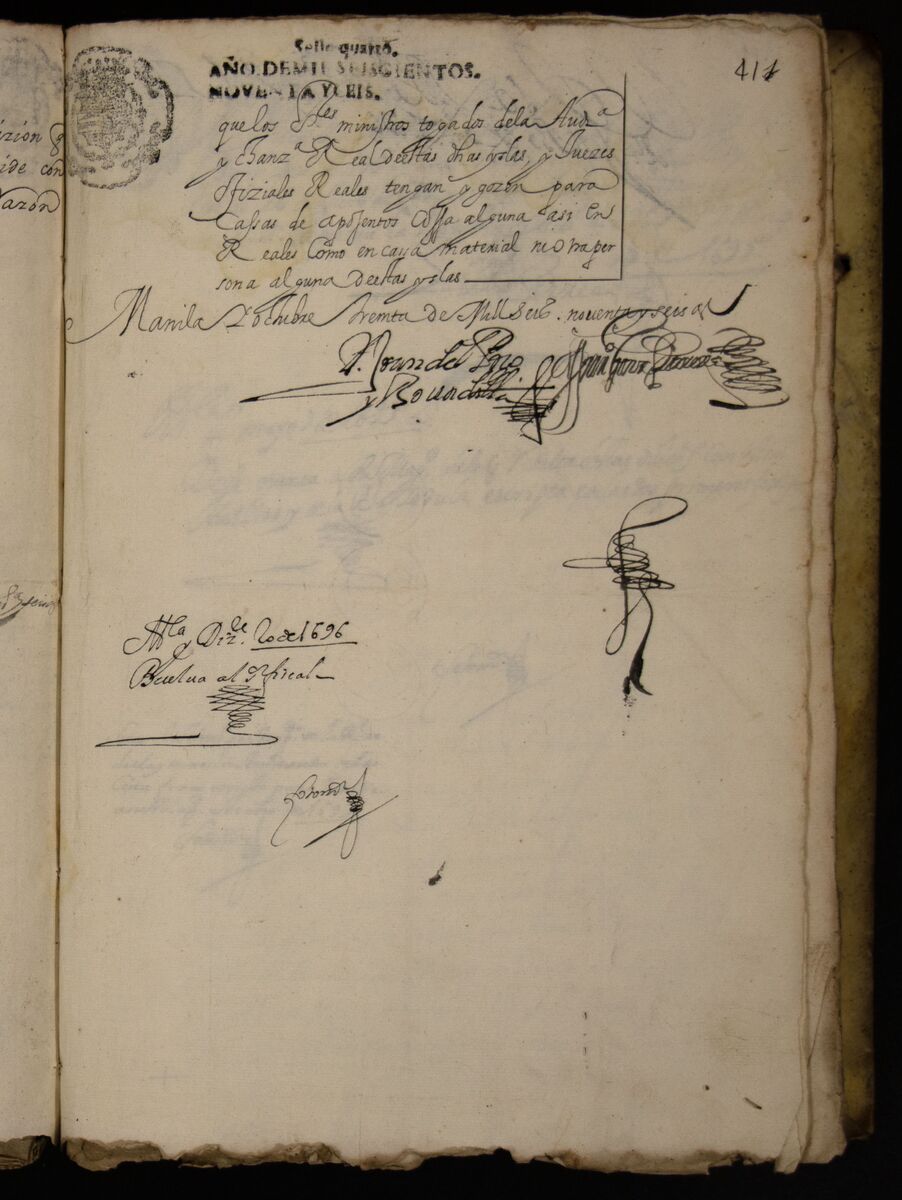 414
Sello quarto.
AÑO DE MIL SEISCIENTOS.
NOVENTA Y SEIS.
que los S.res ministros togados dela Aud.a
y chanz.a Real de estas dhas yslas, y Juezes
ofiziales Reales tengan y gozen para
Cassas de aposentos cossa alguna asi en
Reales como en caya material ni otra per
sona alguna de estas yslas
Manila Y octubre treinta de Mill seis. noventa y seis a.s
D. Juan del
y
M.la y Diz.re 20 de 1696
Buelua al S.r fiscal